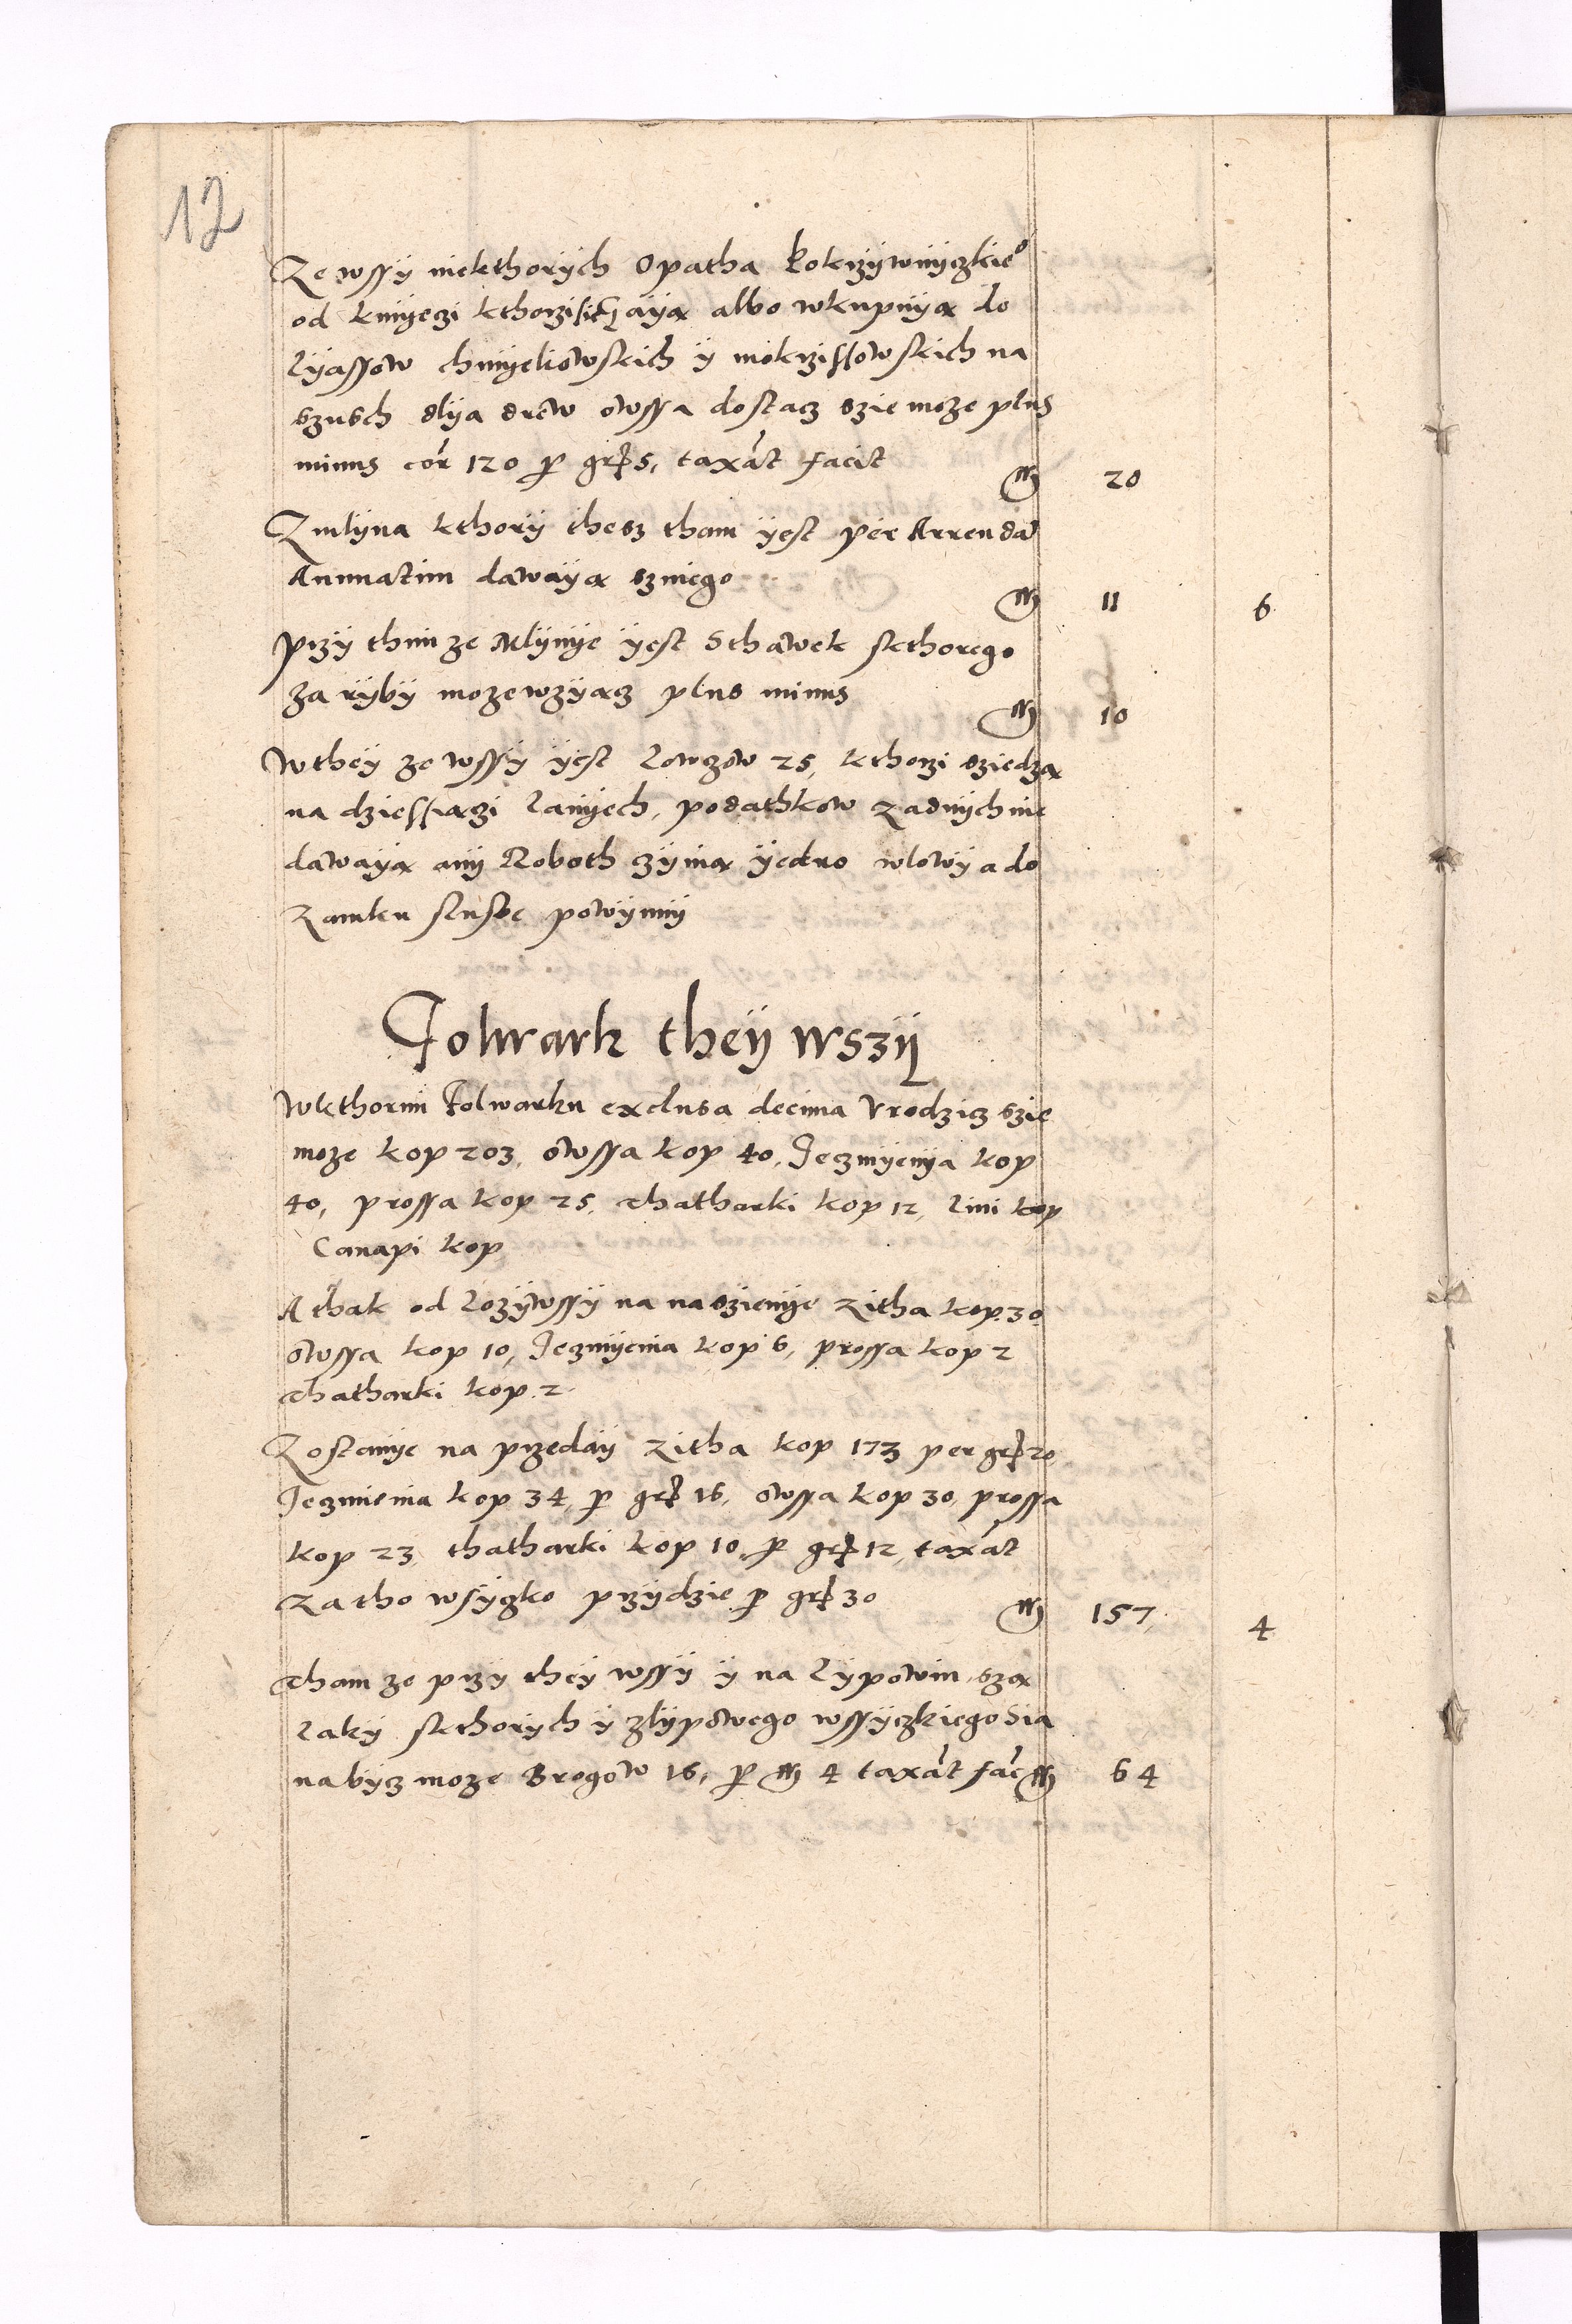 12
Ze wssÿ niekthorÿch Opatha Kokrzÿwnÿczkie°
od kmÿeczi kthorzi sie Hayą albo wkupuÿą do
lÿassow chmÿeliowskich ÿ mokrzissowskich na
szusch dlÿa drew owssa dostacz szie moze plus
minus cor 120 p gr 5, taxat facit M 20
Zmlÿna kthorÿ thesz tham ÿest per Arrenda
Annuatim dawaÿą szniego M 11 6
przÿ thimze Mlÿnÿe ÿest Sthawek skthorego
za rÿbÿ moze wzÿącz plus minus M 10
Wtheÿ ze wssÿ ÿest lowczow 25, kthorzi sziedzą
na dziessiączi lanÿech, podathkow zadnÿch nie
dawaÿą anÿ Roboth czÿnią ÿedno wlowÿ a do
zamku sluzbe powÿnnÿ
Folwark theÿ wszÿ
Wkthorim Folwarku exclusa decima Vrodzicz szie
moze kop 203, owssa kop 40, Jeczmÿenÿa kop
40, prossa kop 25, Thatharki kop 12, lini kop
Canapi kop
A thak od lozÿwssÿ na naszienÿe zitha kop 30
owssa kop 10, Jeczmÿenia kop 6, prossa kop 2
Thatharki kop 2
Zostanÿe na przedaÿ zitha kop 173 per gr 20
Jeczmienia kop 34, p gr 16, owssa kop 30, prossa
kop 23, thatharki kop 10, p gr 12, taxat
za tho wsÿczko przÿdzie p gr 30 M 157 4
Tham ze przÿ theÿ wssÿ ÿ na lÿpowim szą
laki skthorÿch ÿ zlÿpowego wssÿczkiego Sia
na bÿcz moze Brogow 16, p M 4 taxat fac M 64